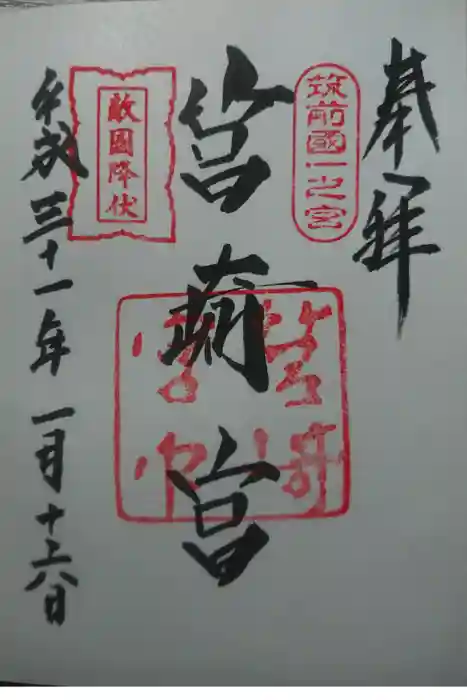 奉拝
筑前國一之宮
筥崎宮
筥崎
宮印
敵國降伏
平成三十一年一月十六日